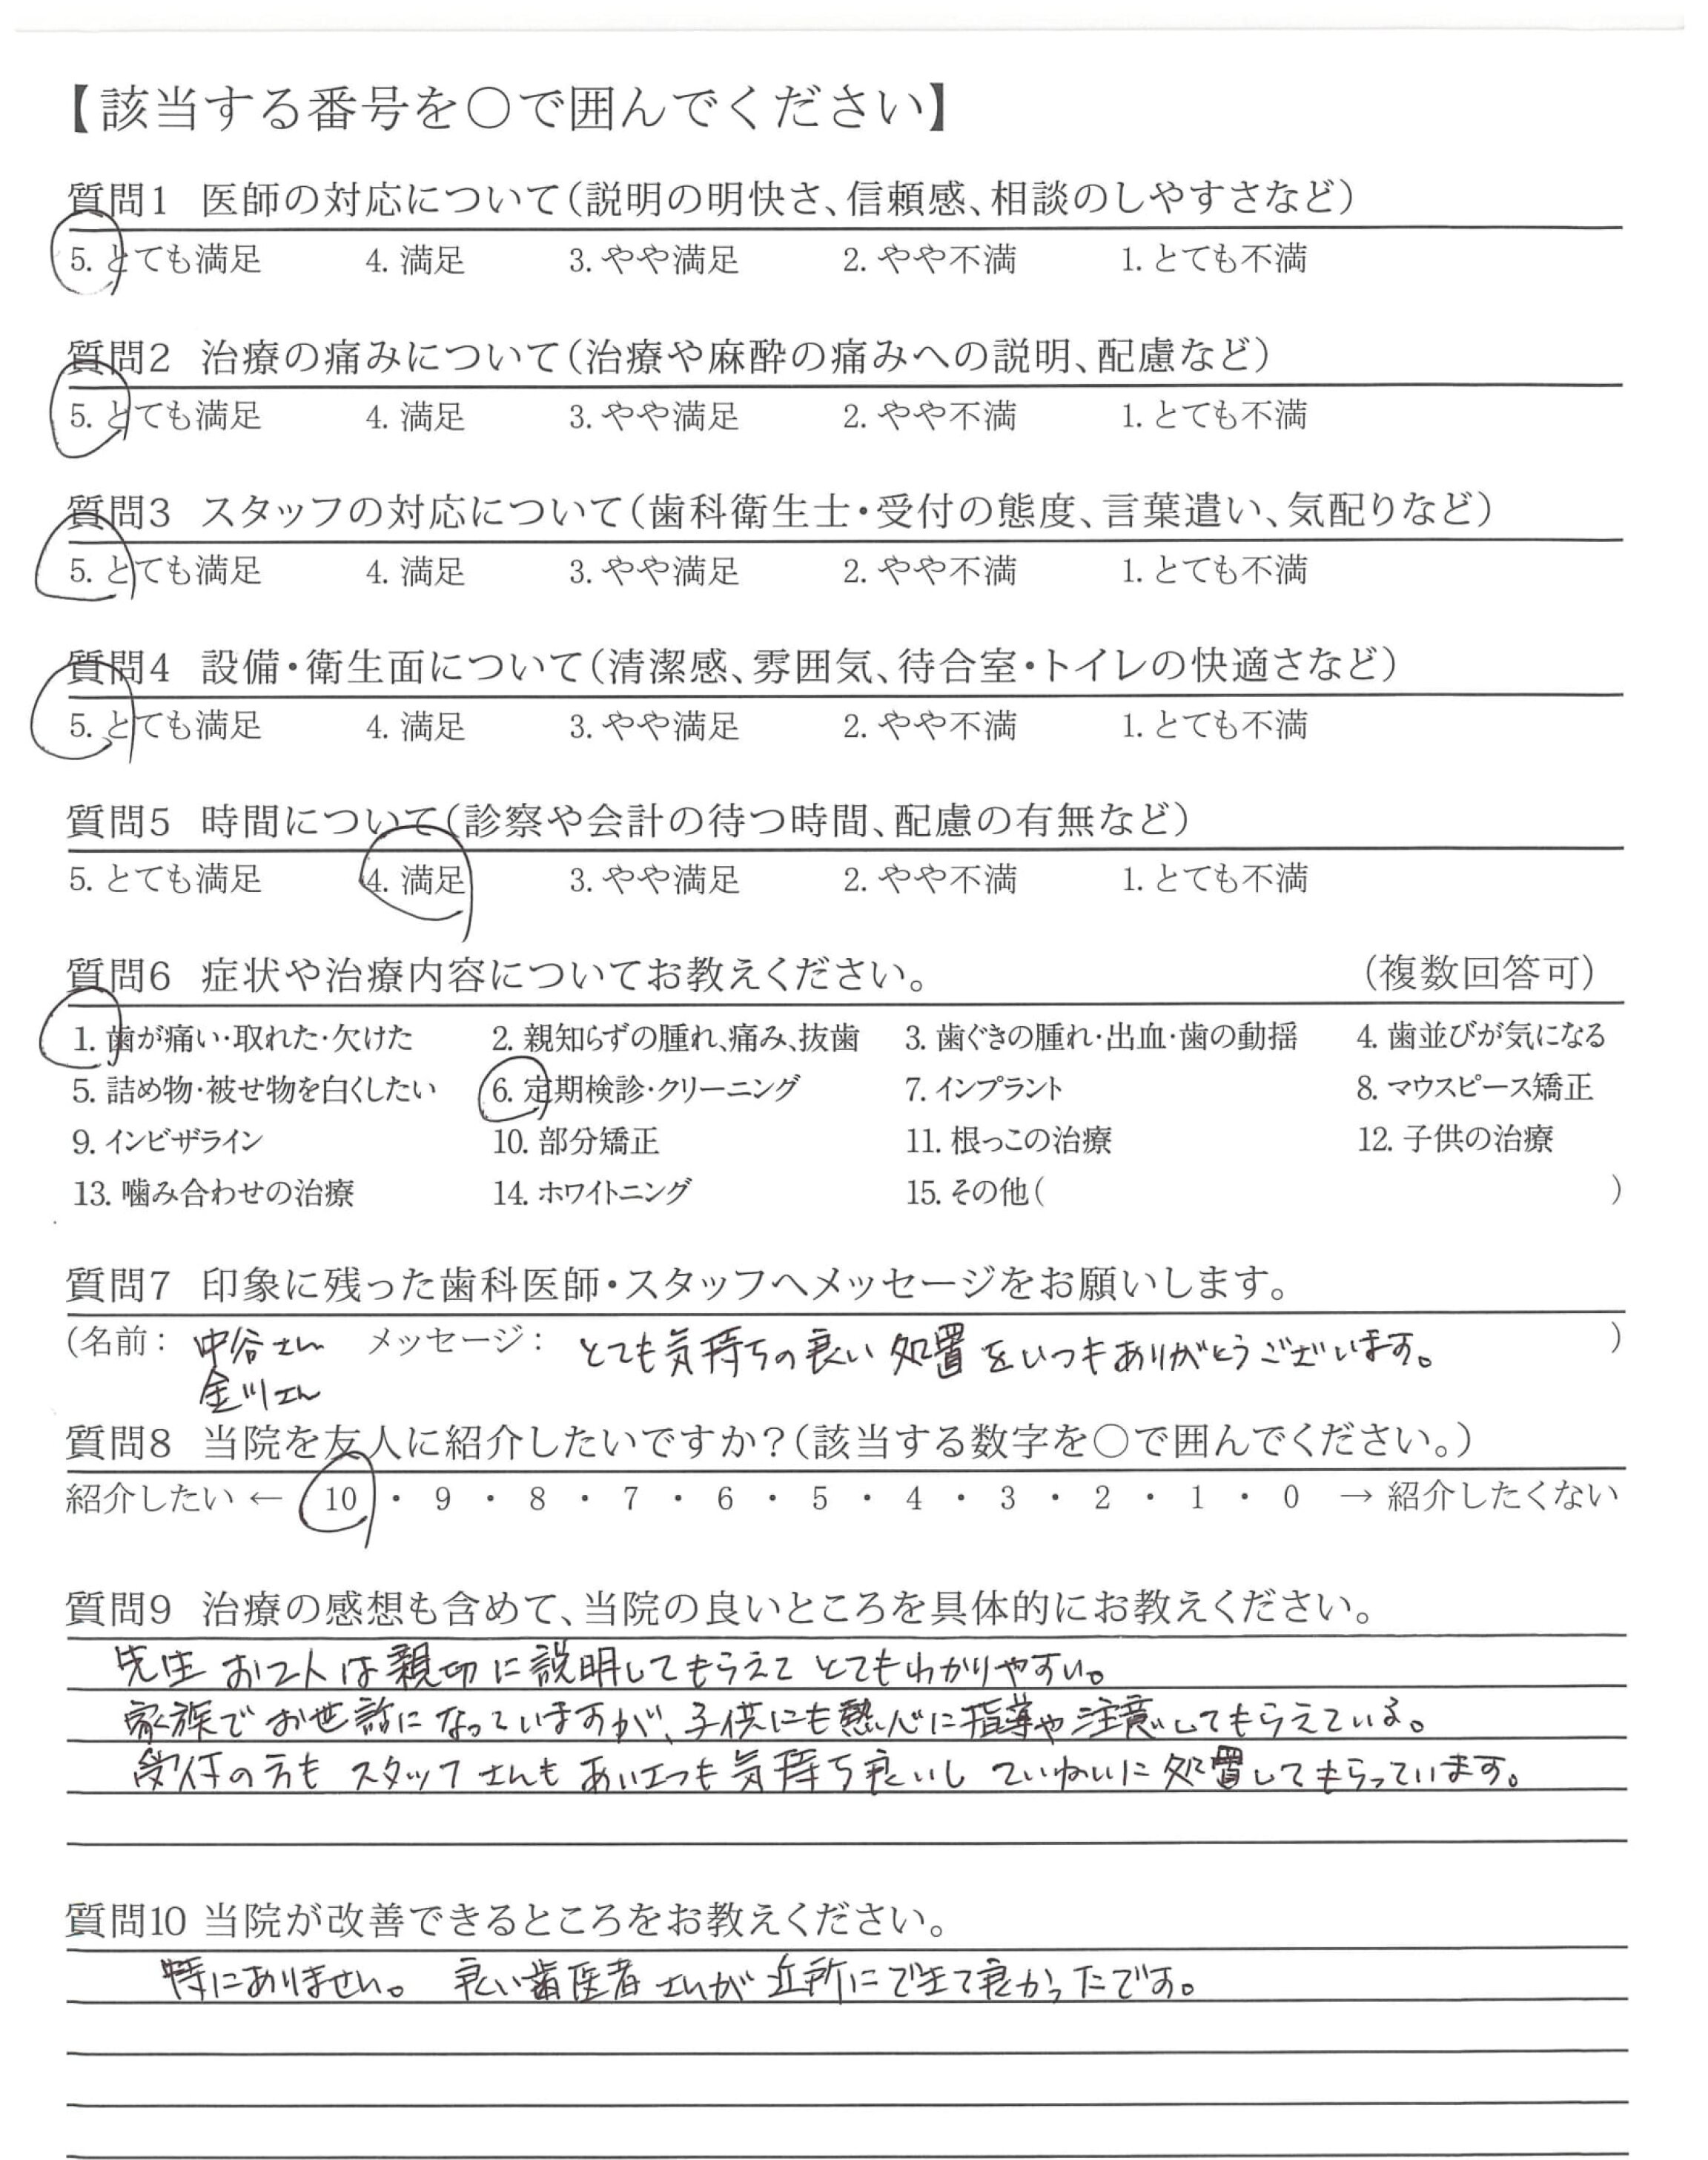 【該当する番号を○で囲んでください】
質問1 医師の対応について(説明の明快さ、信頼感、相談のしやすさなど)
5. とても満足 4. 満足 3. やや満足 2. やや不満 1. とても不満
質問2 治療の痛みについて(治療や麻酔の痛みへの説明、配慮など)
5. とても満足 4. 満足 3. やや満足 2. やや不満 1. とても不満
質問3 スタッフの対応について(歯科衛生士・受付の態度、言葉遣い、気配りなど)
5. とても満足 4. 満足 3. やや満足 2. やや不満 1. とても不満
質問4 設備・衛生面について(清潔感、雰囲気、待合室・トイレの快適さなど)
5. とても満足 4. 満足 3. やや満足 2. やや不満 1. とても不満
質問5 時間について(診察や会計の待つ時間、配慮の有無など)
5. とても満足 4. 満足 3. やや満足 2. やや不満 1. とても不満
質問6 症状や治療内容についてお教えください。 (複数回答可)
1. 歯が痛い・取れた・欠けた 2. 親知らずの腫れ、痛み、抜歯 3. 歯ぐきの腫れ・出血・歯の動揺 4. 歯並びが気になる
5. 詰め物・被せ物を白くしたい 6. 定期検診・クリーニング 7. インプラント 8. マウスピース矯正
9. インビザライン 10. 部分矯正 11. 根っこの治療 12. 子供の治療
13. 噛み合わせの治療 14. ホワイトニング 15. その他( )
質問7 印象に残った歯科医師・スタッフへメッセージをお願いします。
(名前: 中谷さん メッセージ: とても気持ちの良い処置をいつもありがとうございます。 )
金川さん
質問8 当院を友人に紹介したいですか?(該当する数字を○で囲んでください。)
紹介したい ← 10 ・ 9 ・ 8 ・ 7 ・ 6 ・ 5 ・ 4 ・ 3 ・ 2 ・ 1 ・ 0 → 紹介したくない
質問9 治療の感想も含めて、当院の良いところを具体的にお教えください。
先生お2人は親切に説明してもらえてとてもわかりやすい。
家族でお世話になっていますが、子供にも熱心に指導や注意してもらえている。
受付の方もスタッフさんもあいさつも気持ち良いしていねいに処置してもらっています。
質問10 当院が改善できるところをお教えください。
特にありません。 良い歯医者さんが近所にできて良かったです。